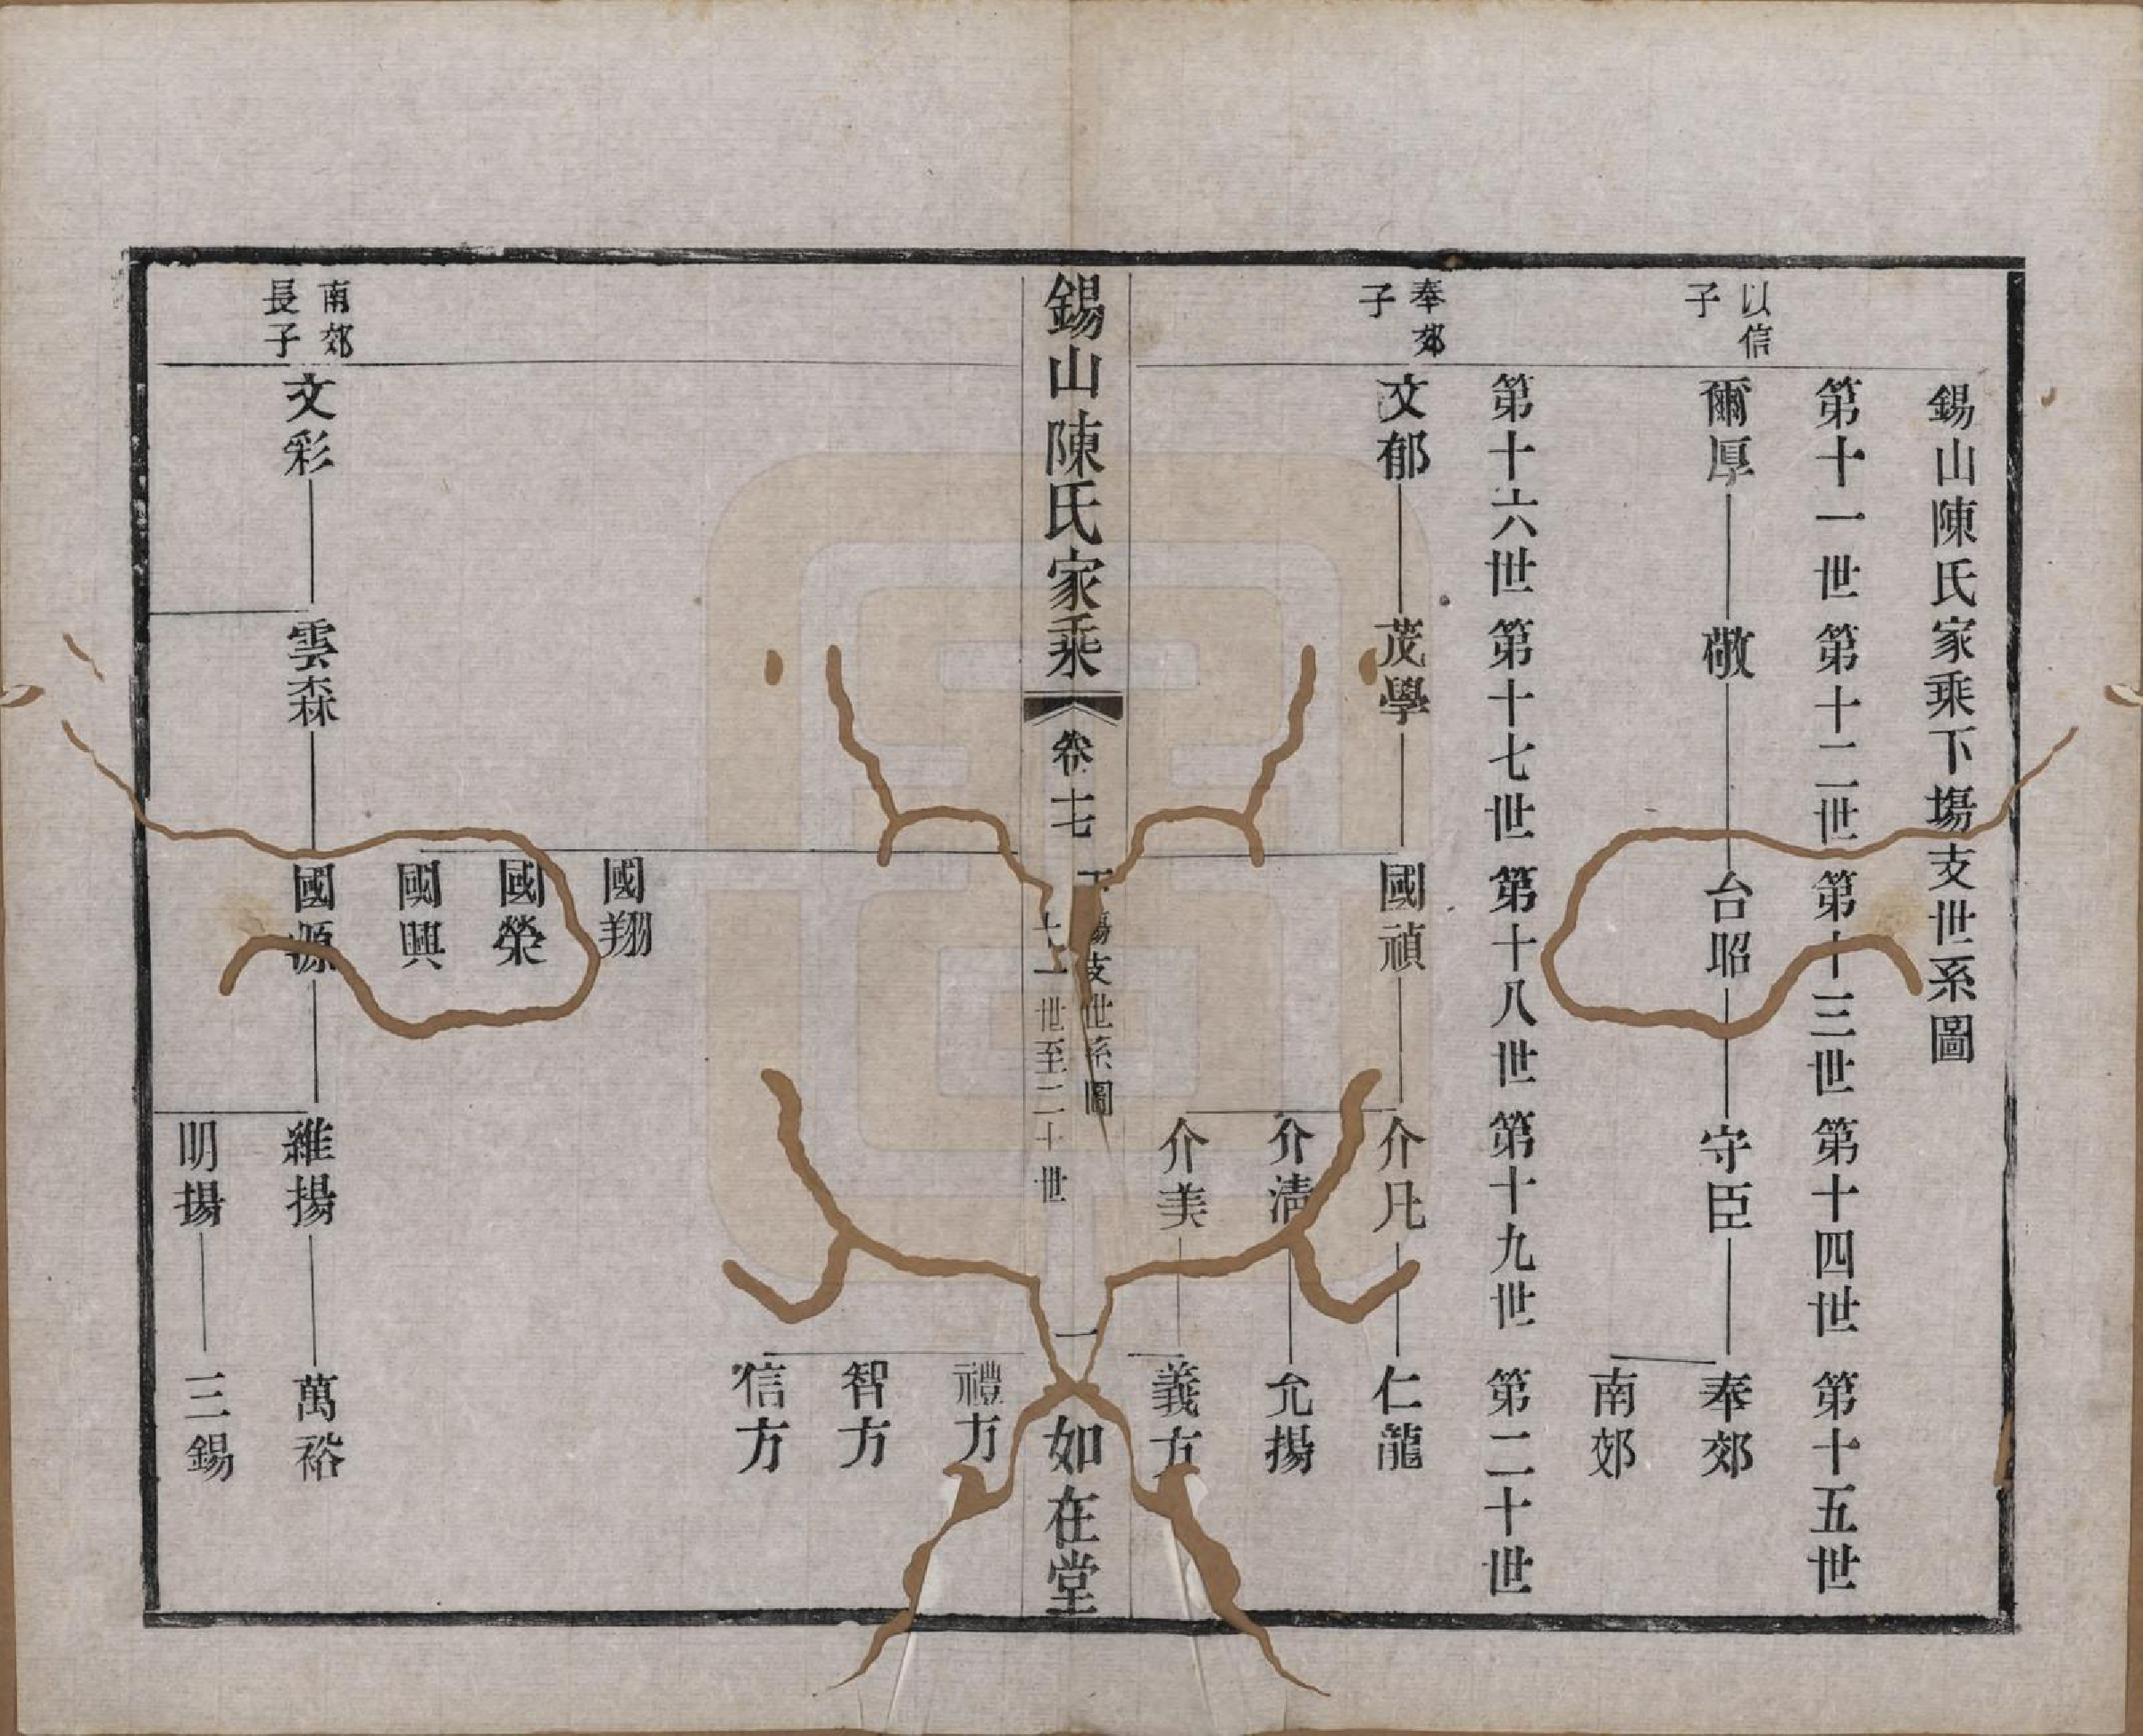 錫山陳氏家乘下塲支世系圖
第十一世 第十二世 第十三世 第十四世 第十五世
以信子
爾厚 敬 台昭 守臣 奉郊
南郊
第十六世 第十七世 第十八世 第十九世 第二十世
奉郊子
文郁 茂學 國禎 介凡 仁龍
介清 允揚
介美 義方
錫山陳氏家乘 卷七 下塲支世系圖 十一世至二十世 一 如在堂
禮方
智方
信方
國翔
國榮
國興
南郊長子
文彩 雲森 國源 維揚 萬裕
明揚 三錫